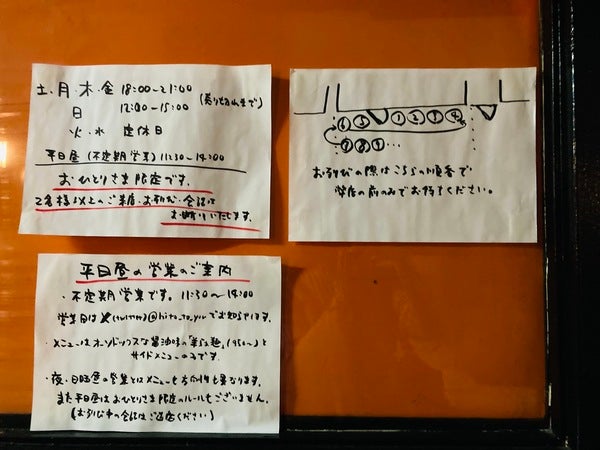 土・月・木・金 18:00〜21:00
(売り切れまで)
日 12:00〜15:00
火・水 定休日
平日昼 (不定期営業) 11:30〜14:00
おひとりさま限定です。
2名様以上のご来店・お並び・会話は
お断りいたします。
⑥ ⑤ ① ② ③ ④
⑦ ⑧ ⑨ ・・・
お並びの際はこちらの順番で
弊店の前のみでお待ちください。
平日昼の営業のご案内
・不定期営業です。11:30〜14:00
営業日は X(twitter)@hito_to_yuでお知らせします。
・メニューはオーソドックスな醤油味の
(950〜)と
サイドメニューのみです。
・夜、日曜昼の営業とはメニューも方向性も異なります。
また平日昼はおひとりさま限定のルールもございません。
(お並び中の会話はご遠慮ください)